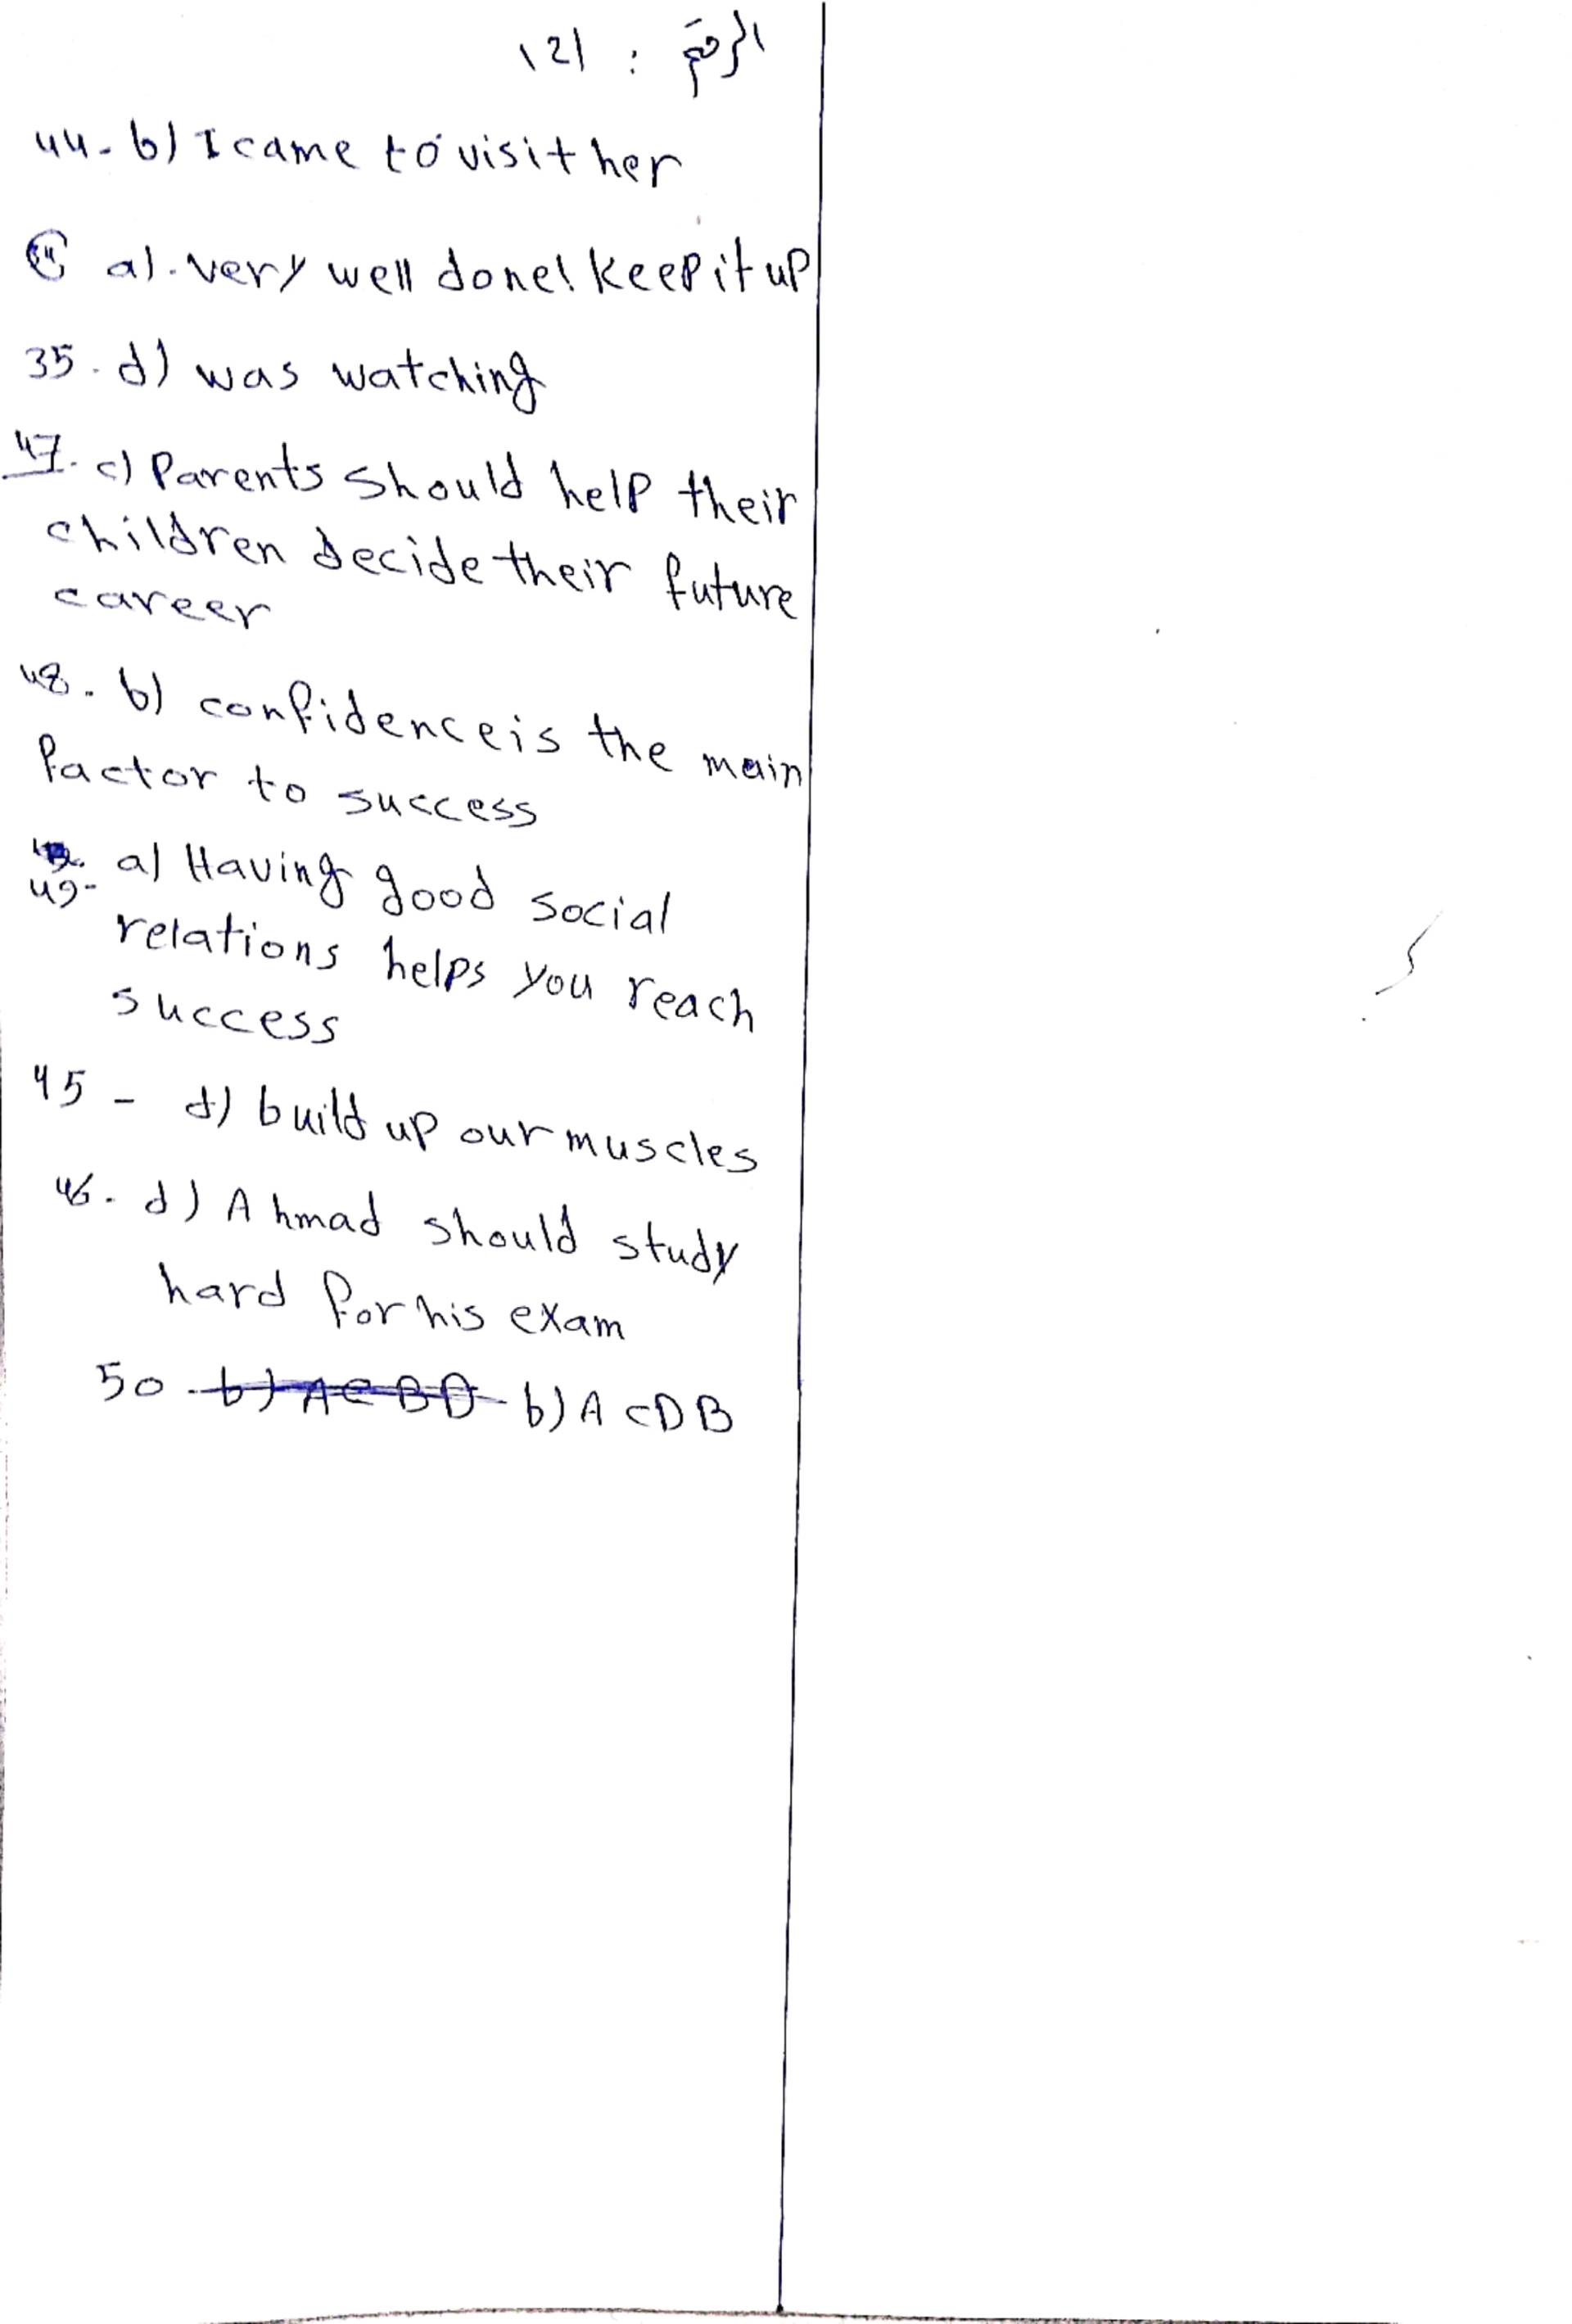 الرقم : 121
44- b) I came to visit her
a)- very well done! keep it up
35- d) was watching
47- c) Parents should help their
children decide their future
career
48- b) confidence is the main
factor to success
49- a) Having good social
relations helps you reach
success
45 - d) build up our muscles
46- d) Ahmad should study
hard for his exam
50 - b) ACBD b) A CDB